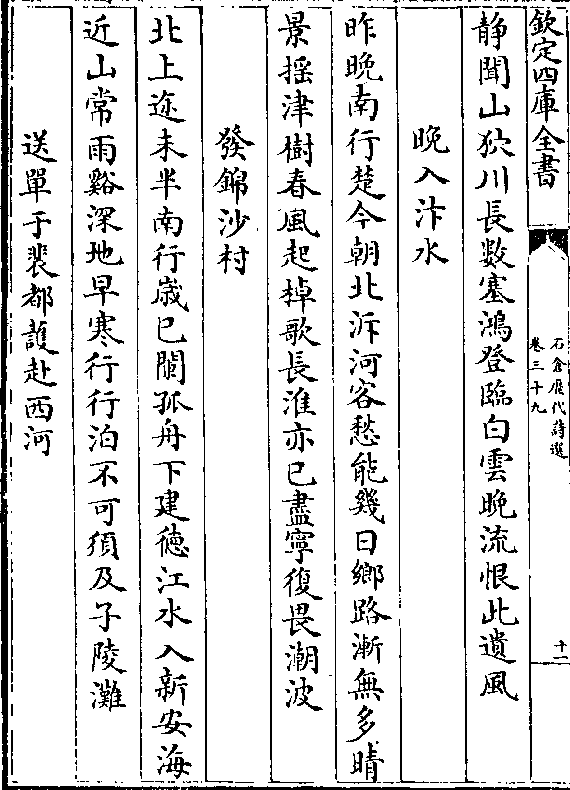 欽定四庫全書
石倉歴代詩選
卷三十九
十二
静聞山狖川長數塞鴻登臨白雲晚流恨此遺風
晚入汴水
昨晚南行楚今朝北泝河客愁能幾日鄉路漸無多晴
景揺津樹春風起棹歌長淮亦已盡寧復畏潮波
發錦沙村
北上迩未半南行歳已闌孤舟下建徳江水入新安海
近山常雨谿深地早寒行行泊不可須及子陵灘
送單于裴都䕶赴西河